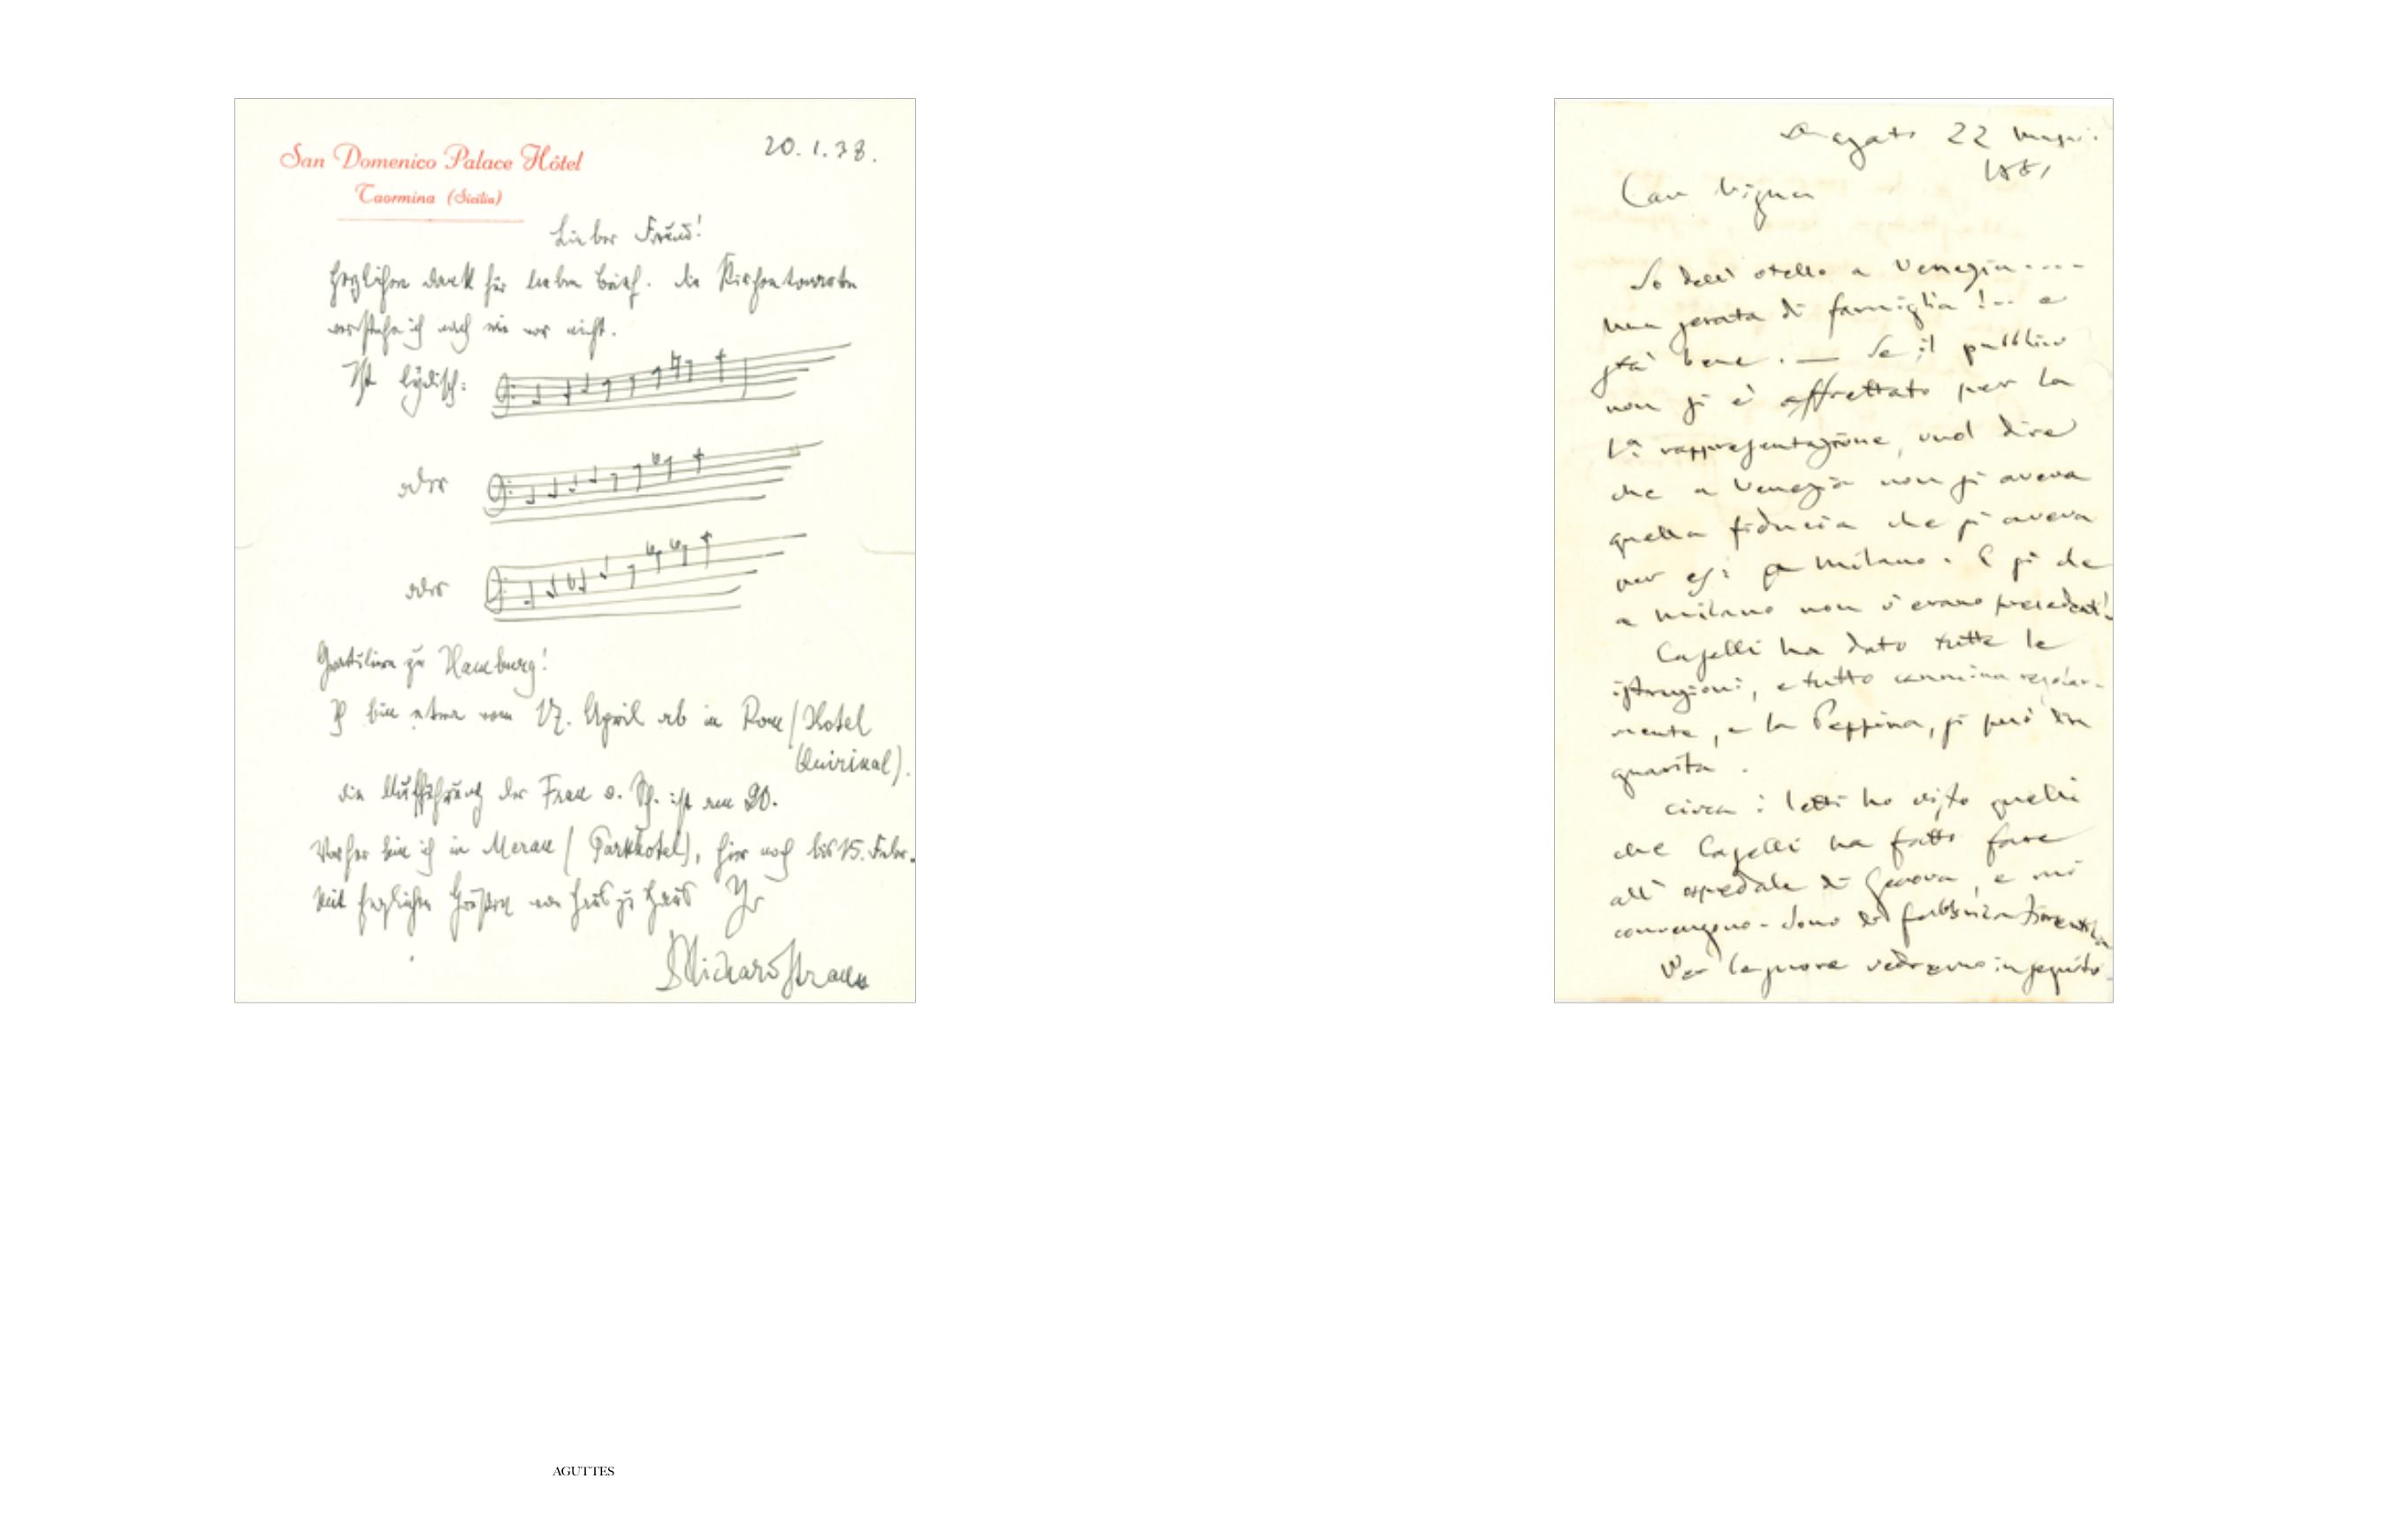 San Domenico Palace Hôtel
Taormina (Sicilia)
20.1.38.
Lieber Freund!
Herzlichen Dank für lieben Brief. Die Kirchentonarten
verstehe ich nach wie vor nicht.
Ist lydisch:
oder
oder
Gratuliere zu Hamburg!
Ich bin etwa vom 17. April ab in Rom (Hotel
Quirinal).
die Aufführung der Frau o. Sch. ist am 20.
Vorher bin ich in Meran (Parkhotel), hier noch bis 15. Febr.
Mit herzlichen Grüßen von Haus zu Haus Ihr
Richard Strauss
S. Agata 22
Car Vigna
So dell' otello a Venezia....
una serata di famiglia!.. e
stà bene. — Se il pubblico
non si è affrettato per la
1ª rappresentazione, vuol dire
che a Venezia non si aveva
quella fiducia che si aveva
per a Milano. E sì che
a Milano non v'erano precedenti!
Caselli ha dato tutte le
istruzioni, e tutto cammina regolar-
mente, e la Peppina, si può dir
guarita.
Circa i letti ho visto quelli
che Caselli ha fatto fare
all' ospedale di Genova, e mi
convengono. Sono di fabbrica
Per le suore vedremo in seguito.
AGUTTES